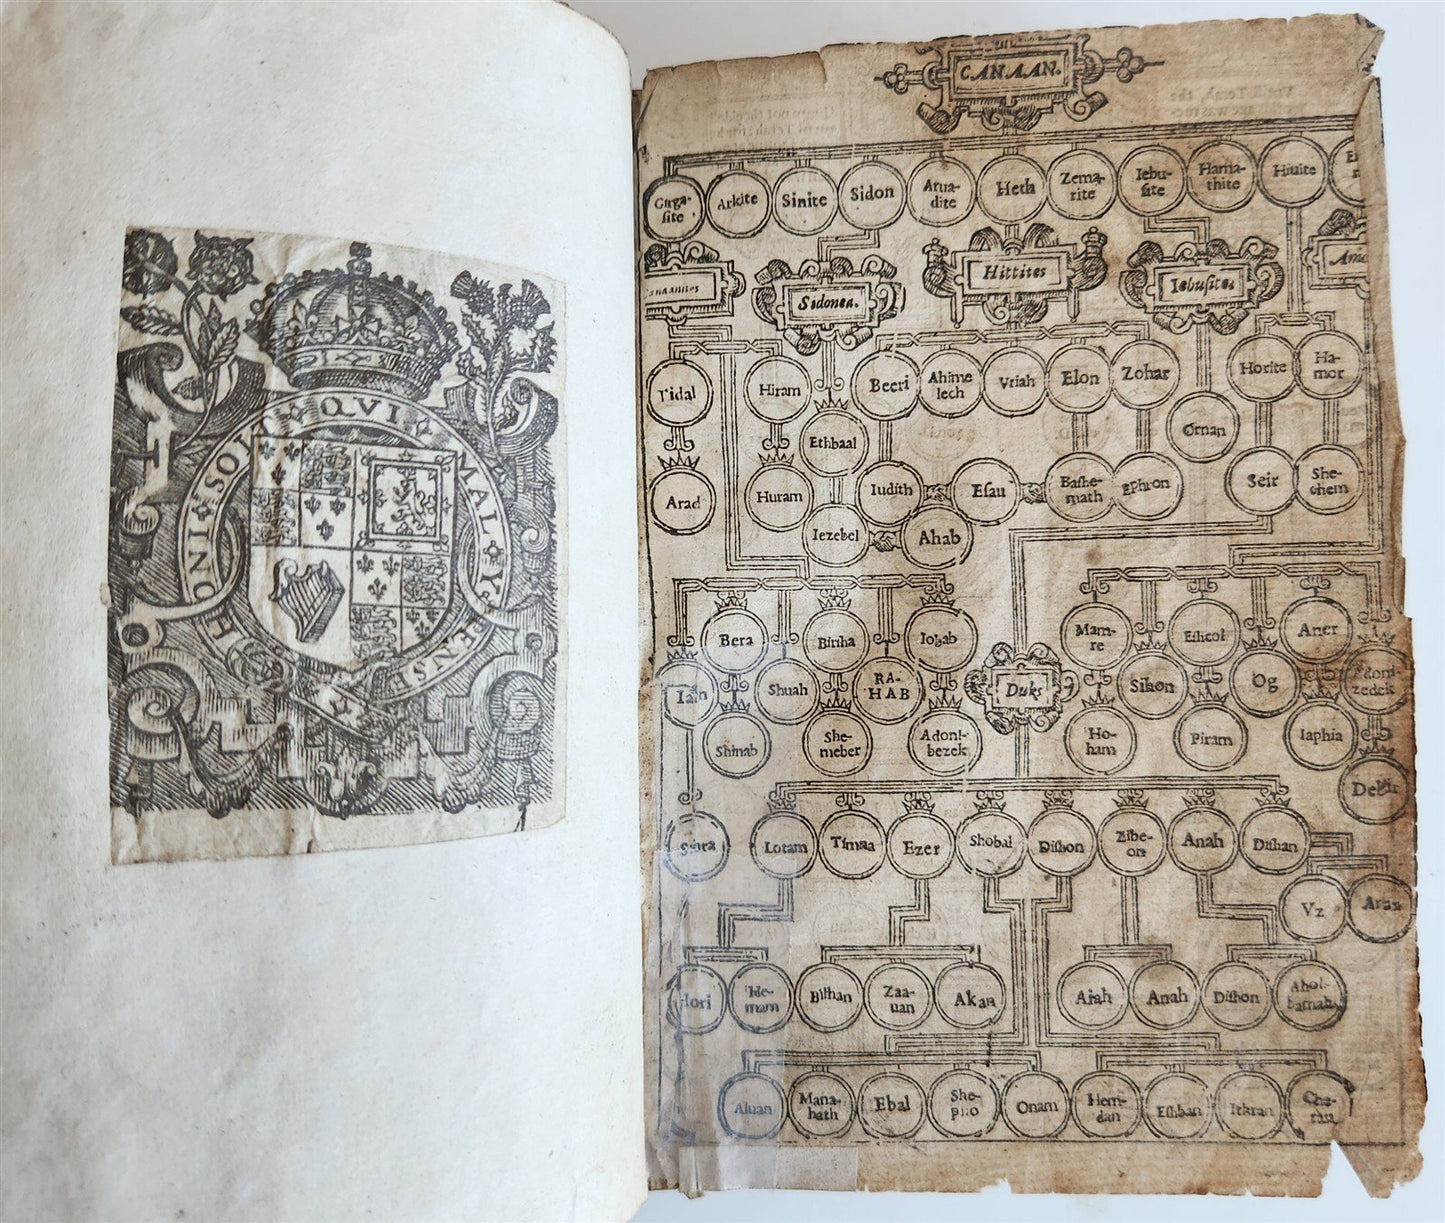 HONI SOIT QVI MAL Y PENSE
CANAAN.
Girga-
site
Arkite
Sinite
Sidon
Arua-
dite
Heth
Zema-
rite
Iebu-
site
Hama-
thite
Hiuite
Sidonea.
Hittites
Iebusites
Tidal
Hiram
Beeri
Ahime
lech
Vriah
Elon
Zohar
Horite
Ha-
mor
Ethbaal
Ornan
Arad
Huram
Iudith
Esau
Bashe-
math
Ephron
Seir
She-
chem
Iezebel
Ahab
Bera
Birsha
Iobab
Mam-
re
Eshcol
Aner
Shuah
RA-
HAB
Duks
Sihon
Og
Adoni
zedek
Shinab
She-
meber
Adoni-
bezek
Ho-
ham
Piram
Iaphia
Debir
Lotam
Timaa
Ezer
Shobal
Dishon
Zibe-
on
Anah
Dishan
Vz
Aran
Hori
He-
mam
Bilhan
Zaa-
uan
Akan
Aiah
Anah
Dishon
Ahol-
bamah
Aluan
Mana-
hath
Ebal
She-
pho
Onam
Hem-
dan
Eshban
Ithran
Che-
ran